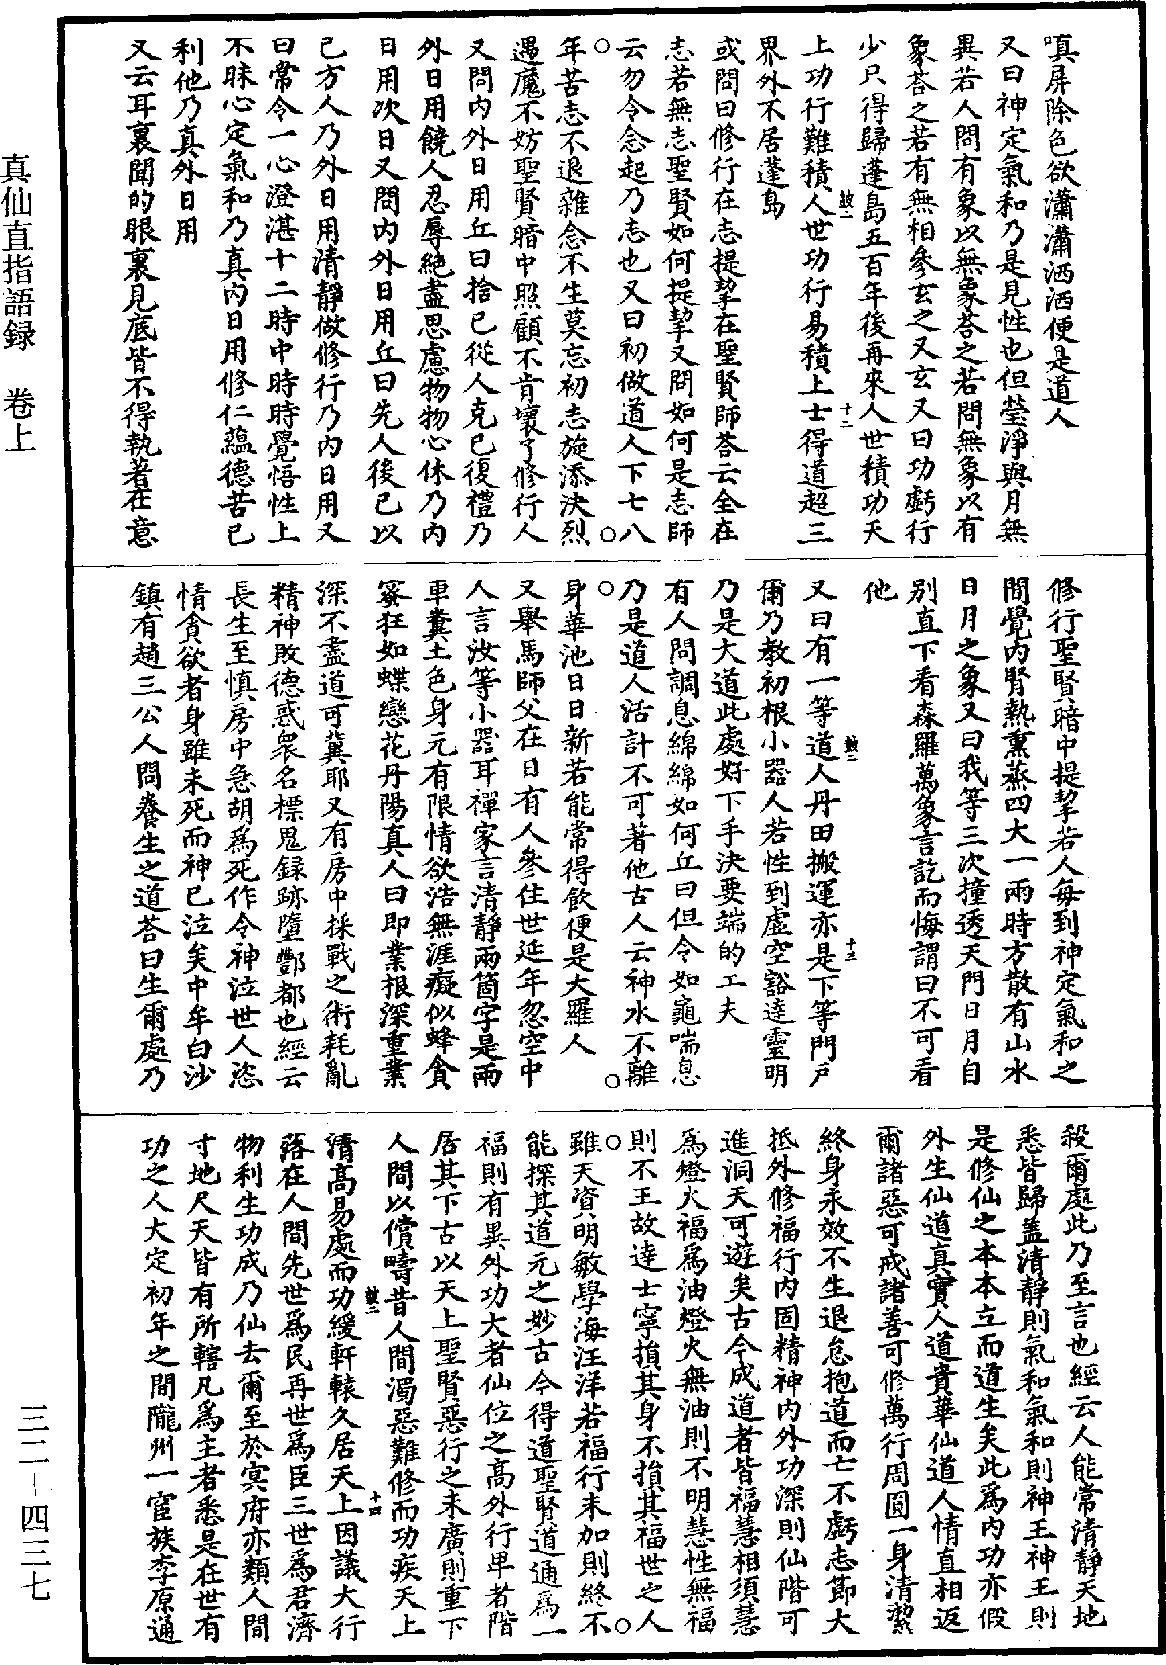 嗔屏除色欲瀟瀟洒洒便是道人
又曰神定氣和乃是見性也但瑩淨與月無
異若人問有象以無象荅之若問無象以有
象荅之若有無相參玄之又玄又曰功虧行
少只得歸蓬島五百年後再來人世積功天
上功行難積人世功行易積上士得道超三
界外不居蓬島
或問曰修行在志提挈在聖賢師荅云全在
志若無志聖賢如何提挈又問如何是志師
云勿令念起乃志也又曰初做道人下七八
年苦志不退雜念不生莫忘初志旋添決烈
遇魔不妨聖賢暗中照顧不肯壞了修行人
又問內外日用丘曰捨己從人克己復禮乃
外日用饒人忍辱絕盡思慮物物心休乃內
日用次日又問內外日用丘曰先人後己以
己方人乃外日用清靜做修行乃內日用又
曰常令一心澄湛十二時中時時覺悟性上
不昧心定氣和乃真內日用修仁蘊德苦己
利他乃真外日用
又云耳裏聞的眼裏見底皆不得執著在意
修行聖賢暗中提挈若人每到神定氣和之
間覺內腎熱熏蒸四大一兩時方散有山水
日月之象又曰我等三次撞透天門日月自
別直下看森羅萬象言訖而悔謂曰不可看
他
又曰有一等道人丹田搬運亦是下等門戶
爾乃教初根小器人若性到虛空豁達靈明
乃是大道此處好下手決要端的工夫
有人問調息綿綿如何丘曰但令如龜喘息
乃是道人活計不可著他古人云神水不離
身華池日日新若能常得飲便是大羅人
又舉馬師父在日有人參住世延年忽空中
人言汝等小器耳禪家言清靜兩箇字是兩
車糞土色身元有限情欲浩無涯癡似蜂貪
蜜狂如蝶戀花丹陽真人曰即業根深重業
深不盡道可冀耶又有房中採戰之術耗亂
精神敗德惑衆名標鬼録跡墮酆都也經云
長生至慎房中急胡爲死作令神泣世人恣
情貪欲者身雖未死而神已泣矣中牟白沙
鎮有趙三公人問養生之道荅曰生爾處乃
殺爾處此乃至言也經云人能常清靜天地
悉皆歸盖清靜則氣和氣和則神王神王則
是修仙之本本立而道生矣此爲內功亦假
外生仙道真實人道貴華仙道人情直相返
爾諸惡可戒諸善可修萬行周圓一身清絜
終身永效不生退怠抱道而亡不虧志節大
抵外修福行內固精神內外功深則仙階可
進洞天可遊矣古今成道者皆福慧相須慧
爲燈火福爲油燈火無油則不明慧性無福
則不王故達士寧損其身不損其福世之人
雖天資明敏學海汪洋若福行未加則終不
能探其道元之妙古今得道聖賢道通爲一
福則有異外功大者仙位之高外行卑者階
居其下古以天上聖賢惡行之未廣則重下
人間以償疇昔人間濁惡難修而功疾天上
清高易處而功緩軒轅久居天上因議大行
落在人間先世爲民再世爲臣三世爲君濟
物利生功成乃仙去爾至於冥府亦類人間
寸地尺天皆有所轄凡爲主者悉是在世有
功之人大定初年之間隴州一宦族李原通
真仙直指語録 卷上
三二－四三七